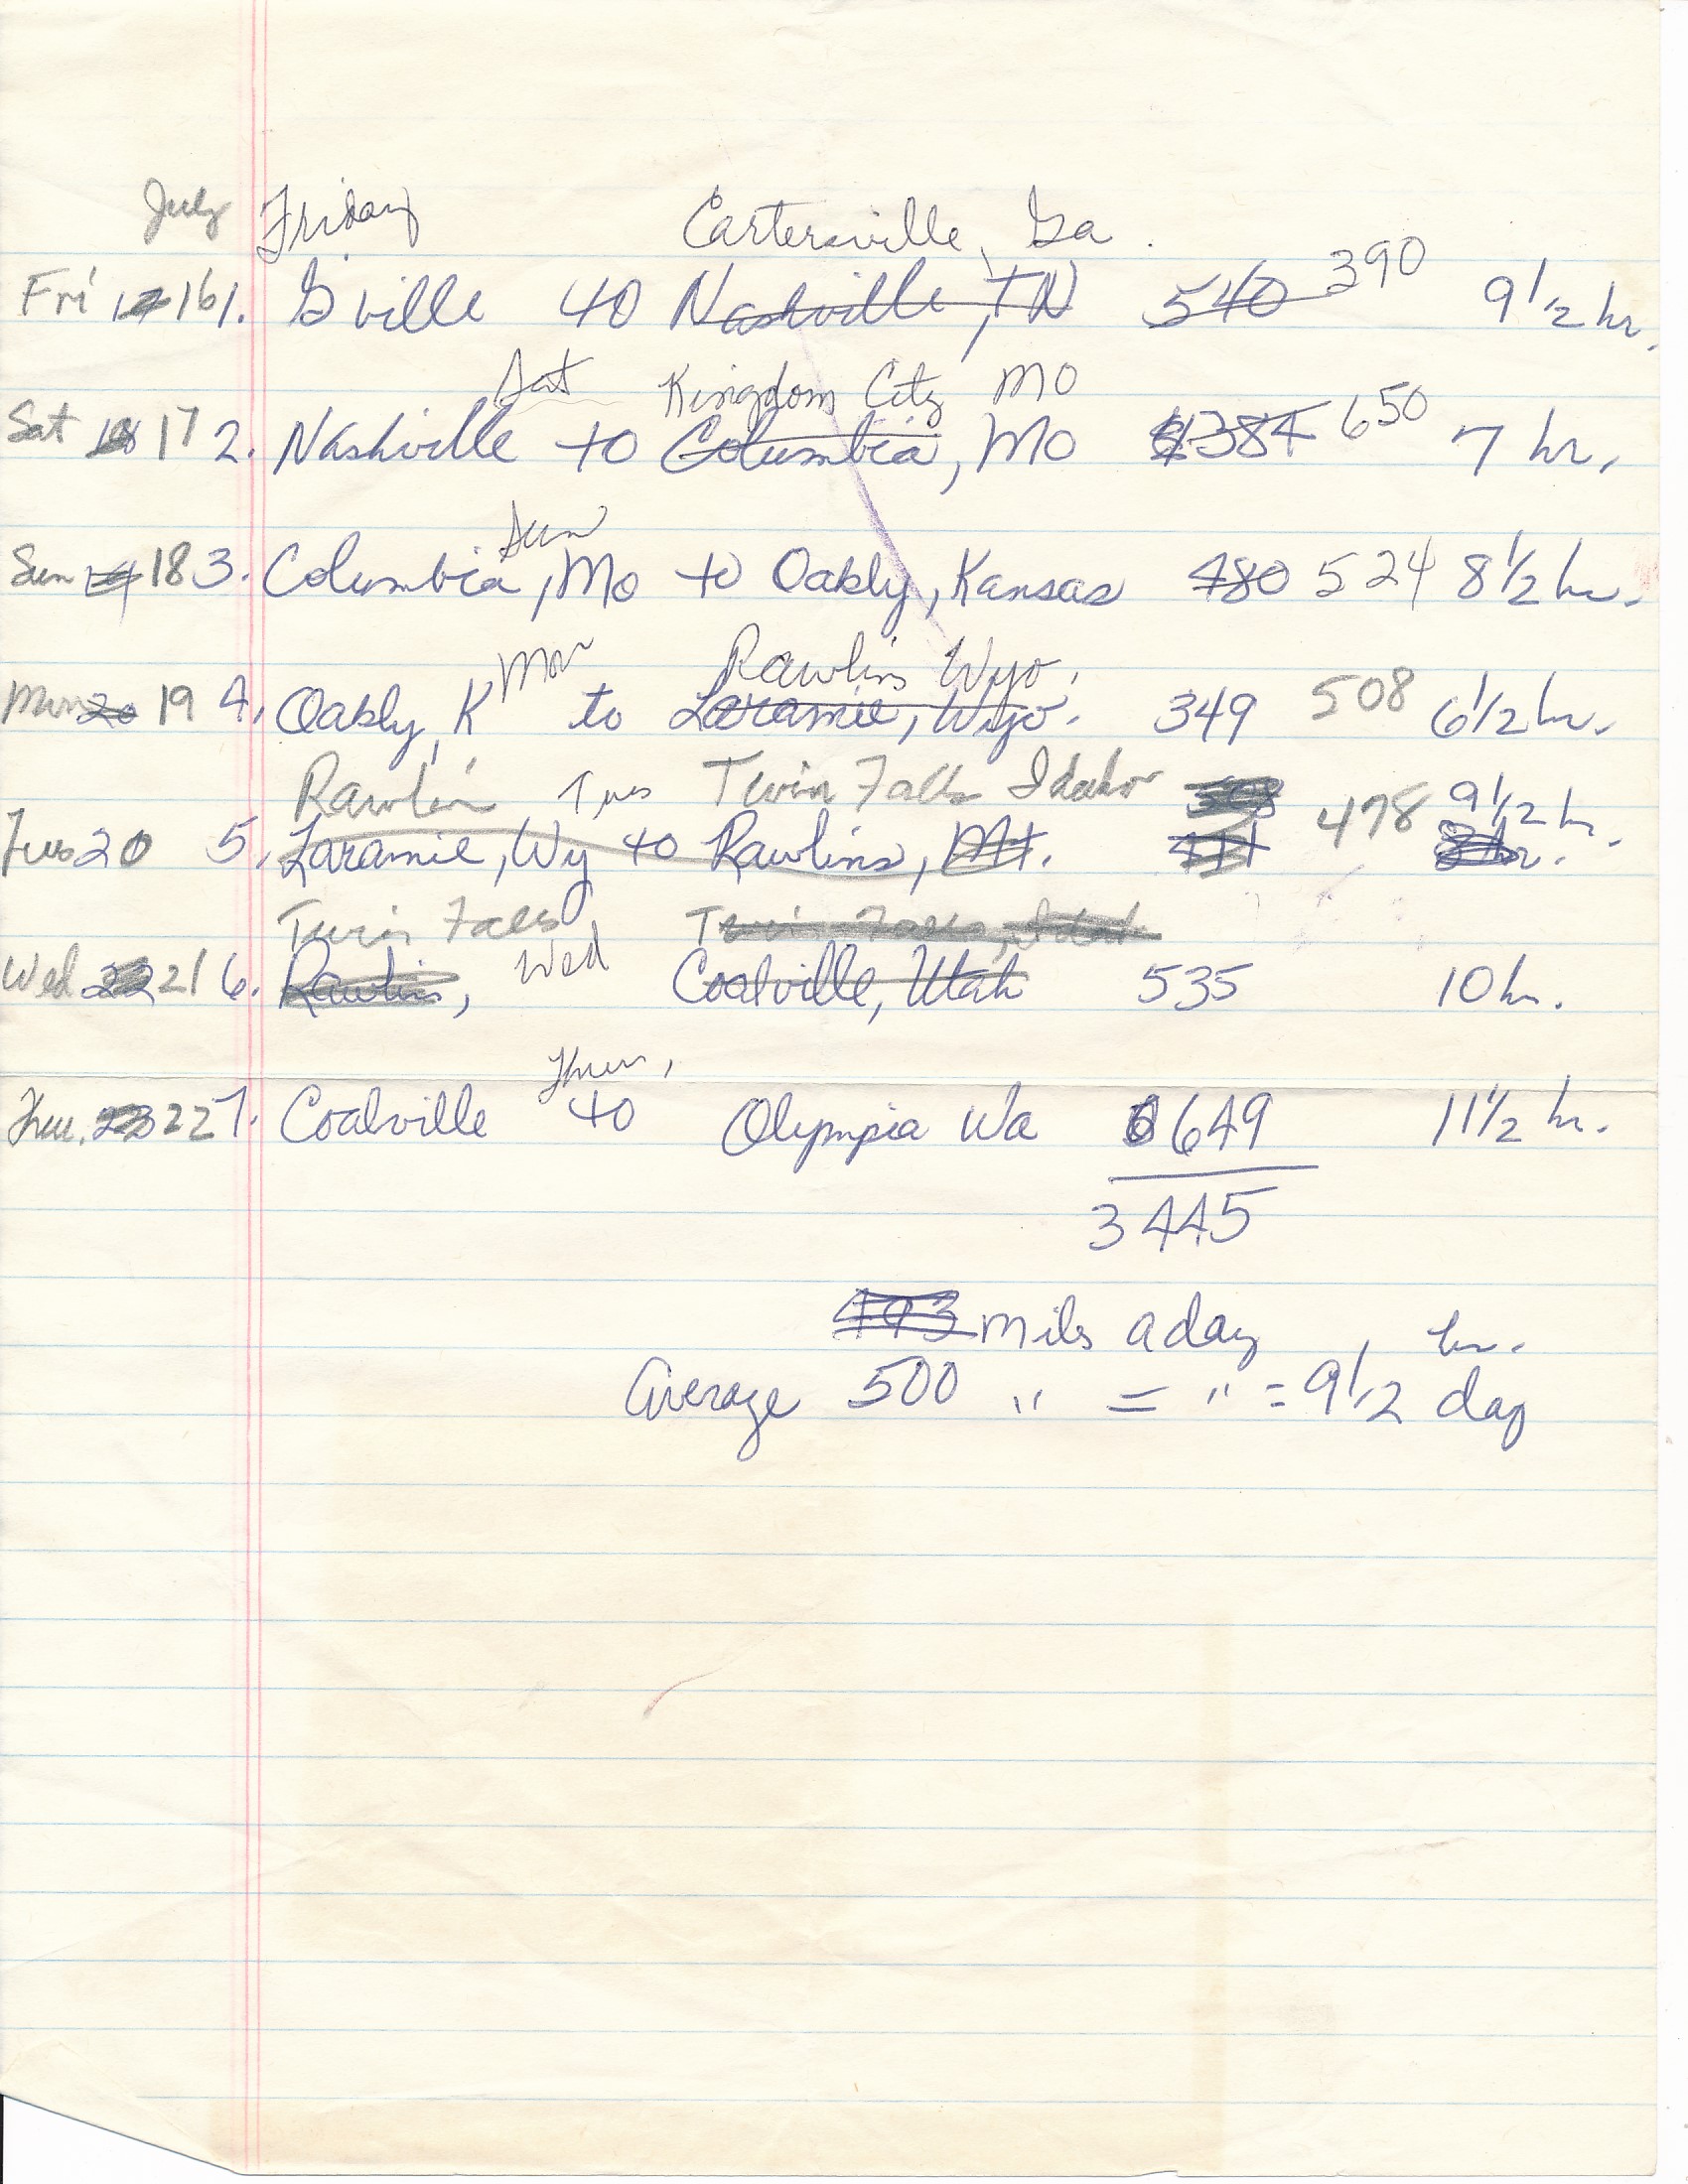 July Friday Cartersville, Ga.
Fri 17 16 1. Gville to Nashville, TN 540 390 9 1/2 hr.
Sat Kingdom City MO
Sat 18 17 2. Nashville to Columbia, Mo 384 650 7 hr.
Sun
Sun 19 18 3. Columbia, Mo to Oakly, Kansas 480 524 8 1/2 hr.
Mon Rawlins Wyo.
Mon 20 19 4. Oakly, K to Laramie, Wyo. 349 508 6 1/2 hr.
Rawlin Tues Twin Falls Idaho 478 9 1/2 hr.
Tues 20 5. Laramie, Wy to Rawlins, Mt. 411 8 hr.
Twin Falls Twin Falls, Idah
Wed 22 21 6. Rawlins, Wed Coalville, Utah 535 10 hr.
Thur,
Thu. 23 22 7. Coalville to Olympia Wa 649 11 1/2 hr.
3445
493 mils a day hr.
Average 500 " = " = 9 1/2 day